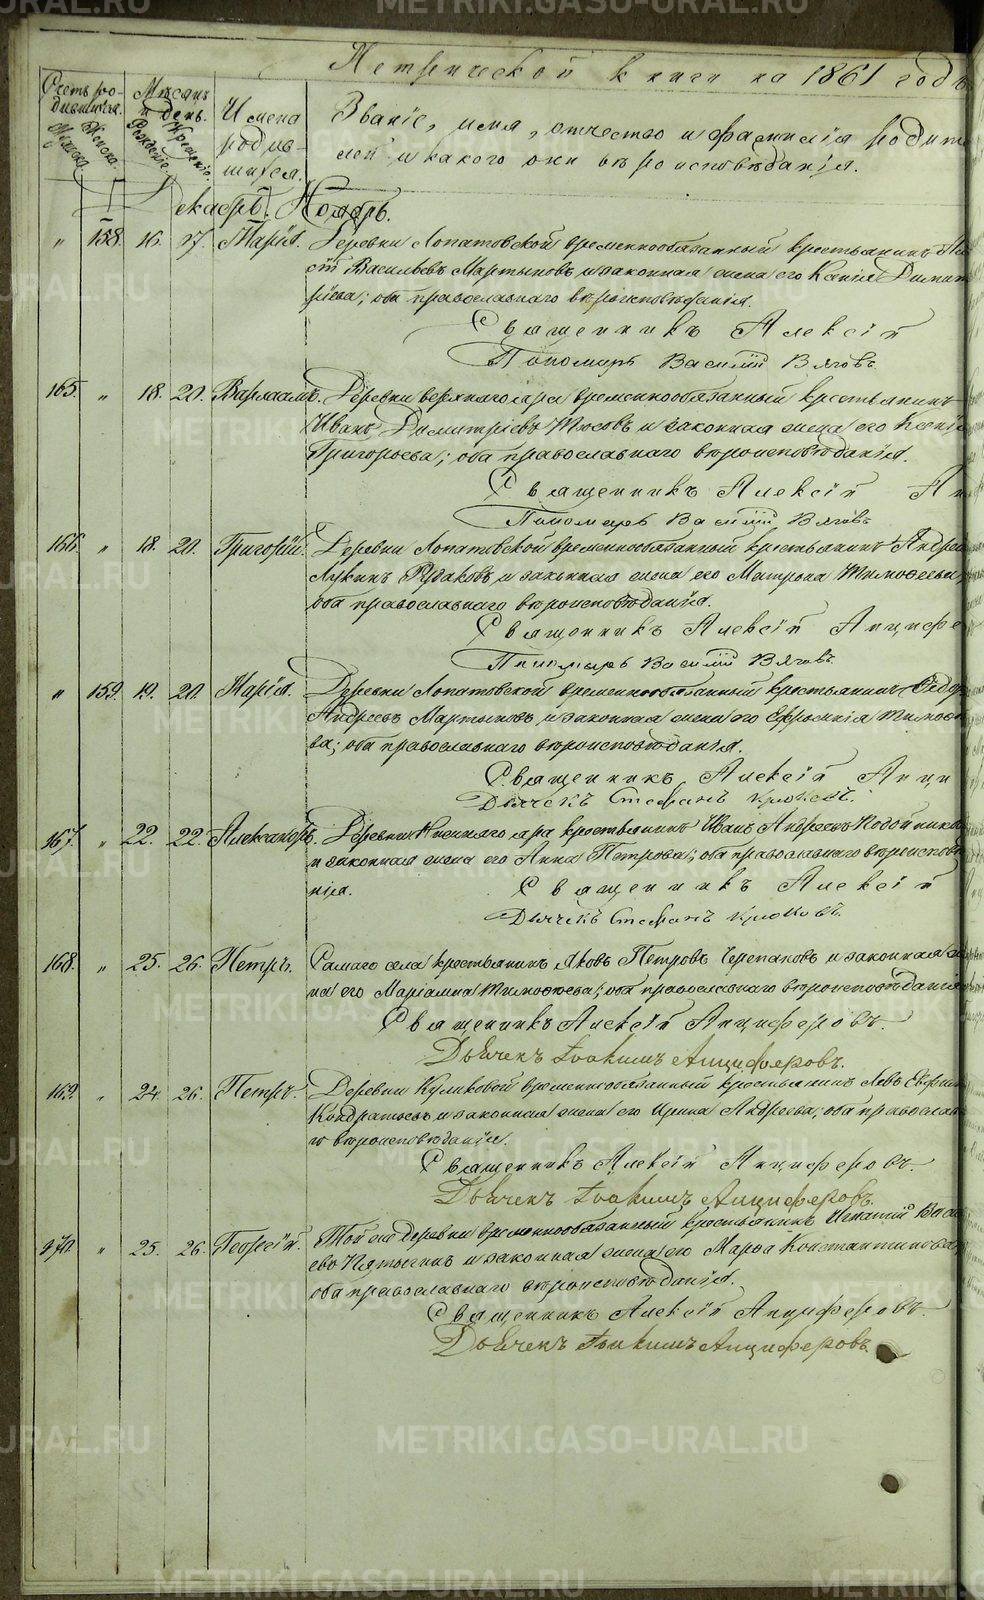 Метрической книги на 1861 годъ
Счетъ ро-
дившихся.
Мѣсяцъ
и день.
Имена
родив-
шихся.
Мужска.
Женска.
Рожденiе.
Крещенiе.
Званiе, имя, отчество и фамилiя родит
лей и какого они вѣроисповѣданiя.
Ноябрь.
" 158. 16. 17. Марiя. Деревни Лопатовской временнообязанный крестьянинъ
Васильевъ Мартыновъ и законная жена его Ксенiя Димит
рiева; оба православнаго вѣроисповѣданiя.
Священникъ Алексiй
Пономарь Василiй Вяговъ
165. " 18. 20. Варлаамъ. Деревни верхняго яра временнообязанный крестьянинъ
Иванъ Димитрiевъ Тюсовъ и законная жена его Ксенiя
Григорьева; оба православнаго вѣроисповѣданiя.
Священникъ Алексiй Ан
Пономарь Василiй Вяговъ
166. " 18. 20. Григорiй. Деревни Лопатовской временнообязанный крестьянинъ Андрей
Лукинъ Рудаковъ и законная жена его Матрона Тимоѳеева
оба православнаго вѣроисповѣданiя.
Священникъ Алексiй Анцифе
Пономарь Василiй Вяговъ.
" 159. 19. 20. Марiя. Деревни Лопатовской временнообязанный крестьянинъ Ѳедоръ
Андреевъ Мартыновъ и законная жена его Ефросинiя Тимоѳе
ва; оба православнаго вѣроисповѣданiя.
Священникъ Алексiй Анци
Дьячекъ Стефанъ Крюковъ.
167. " 22. 22. Александръ. Деревни Нижняго яра крестьянинъ Иванъ Андреевъ Подойников
и законная жена его Анна Петрова; оба православнаго вѣроисповѣ
нiя.
Священникъ Алексiй
Дьячекъ Стефанъ Крюковъ.
168. " 25. 26. Петръ. Самаго села крестьянинъ Яковъ Петровъ Черепановъ и законная же
на его Марiамна Тимоѳеева; оба православнаго вѣроисповѣданiя
Священникъ Алексiй Анциферовъ.
Дьячекъ Iоакимъ Анциферовъ.
169. " 24. 26. Петръ. Деревни Куликовой временнообязанный крестьянинъ Левъ Ефрем
Кондратьевъ и законная жена его Ирина Андреева; оба православна
го вѣроисповѣданiя.
Священникъ Алексiй Анциферовъ.
Дьячекъ Iоакимъ Анциферовъ.
170. " 25. 26. Георгiй. Той же деревни временнообязанный крестьянинъ Игнатiй Васи
евъ Пятыгинъ и законная жена его Марѳа Константинова
оба православнаго вѣроисповѣданiя.
Священникъ Алексiй Анциферовъ
Дьячекъ Iоакимъ Анциферовъ.
METRIKI.GASO-URAL.RU